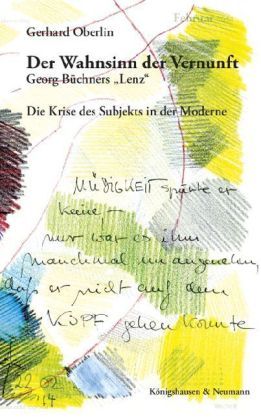 Februar
Gerhard Oberlin
Der Wahnsinn der Vernunft
Georg Büchners „Lenz“
Die Krise des Subjekts in der Moderne
MÜDIGKEIT spürte er
keine –
nur war es ihm
manchmal unangenehm,
daß er nicht auf dem
KOPF gehen konnte
22 02
14
Königshausen & Neumann